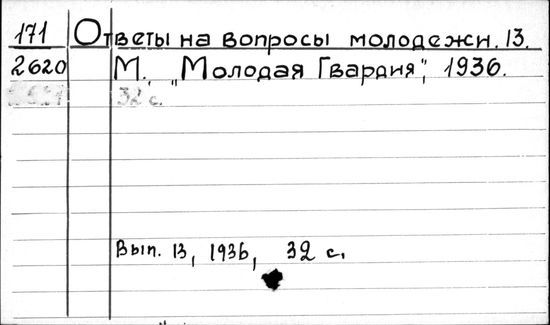 171 Ответы на вопросы молодежи. 13.
2620 М. „Молодая Гвардия“, 1936.
32 с.
Вып. 13, 1936, 32 с.